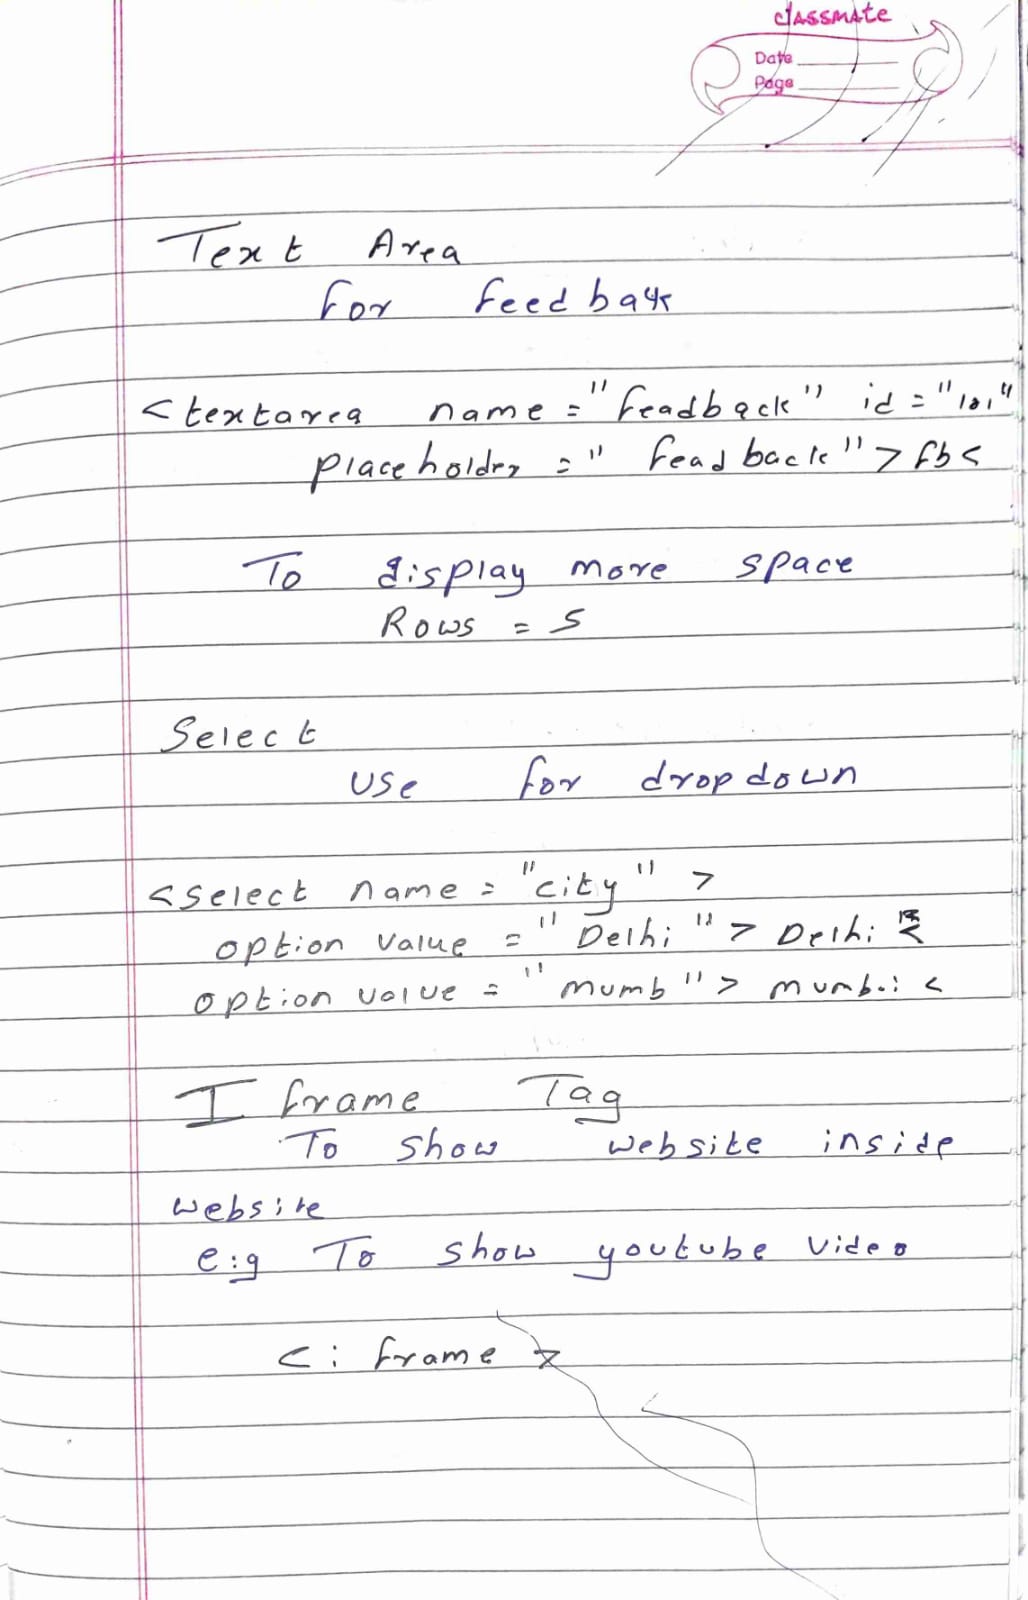 classmate
Date
Page
Text Area
for feedback
<textarea name="feadback" id="101"
placeholder =" feadback"> fb<
To display more space
Rows = 5
Select
use for dropdown
<select name = "city" >
option value = " Delhi "> Delhi <
option value = " mumb "> mumbai <
I frame Tag
To show website inside
website
e:g To show youtube video
<i frame >